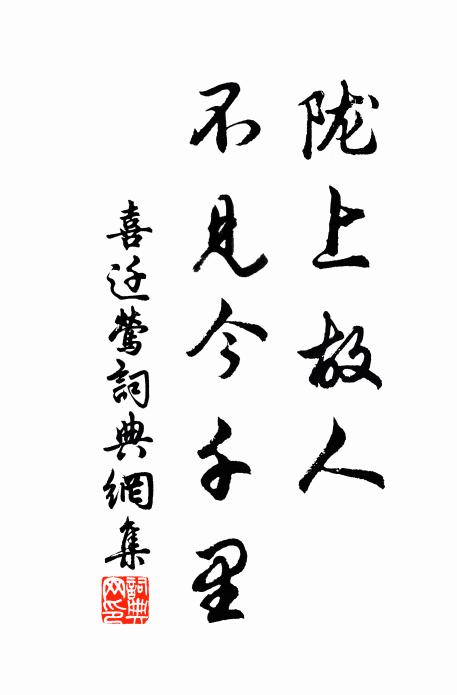 陇上故人
不見今千里
喜迁鶯詞典網集
詞典網印